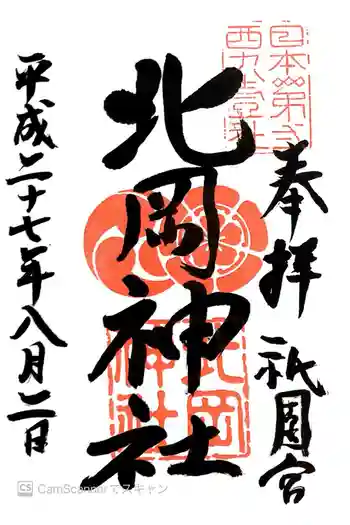 奉拝
祇園宮
北岡神社
平成二十七年八月二日
北岡
神社
CS CamScannerでスキャン